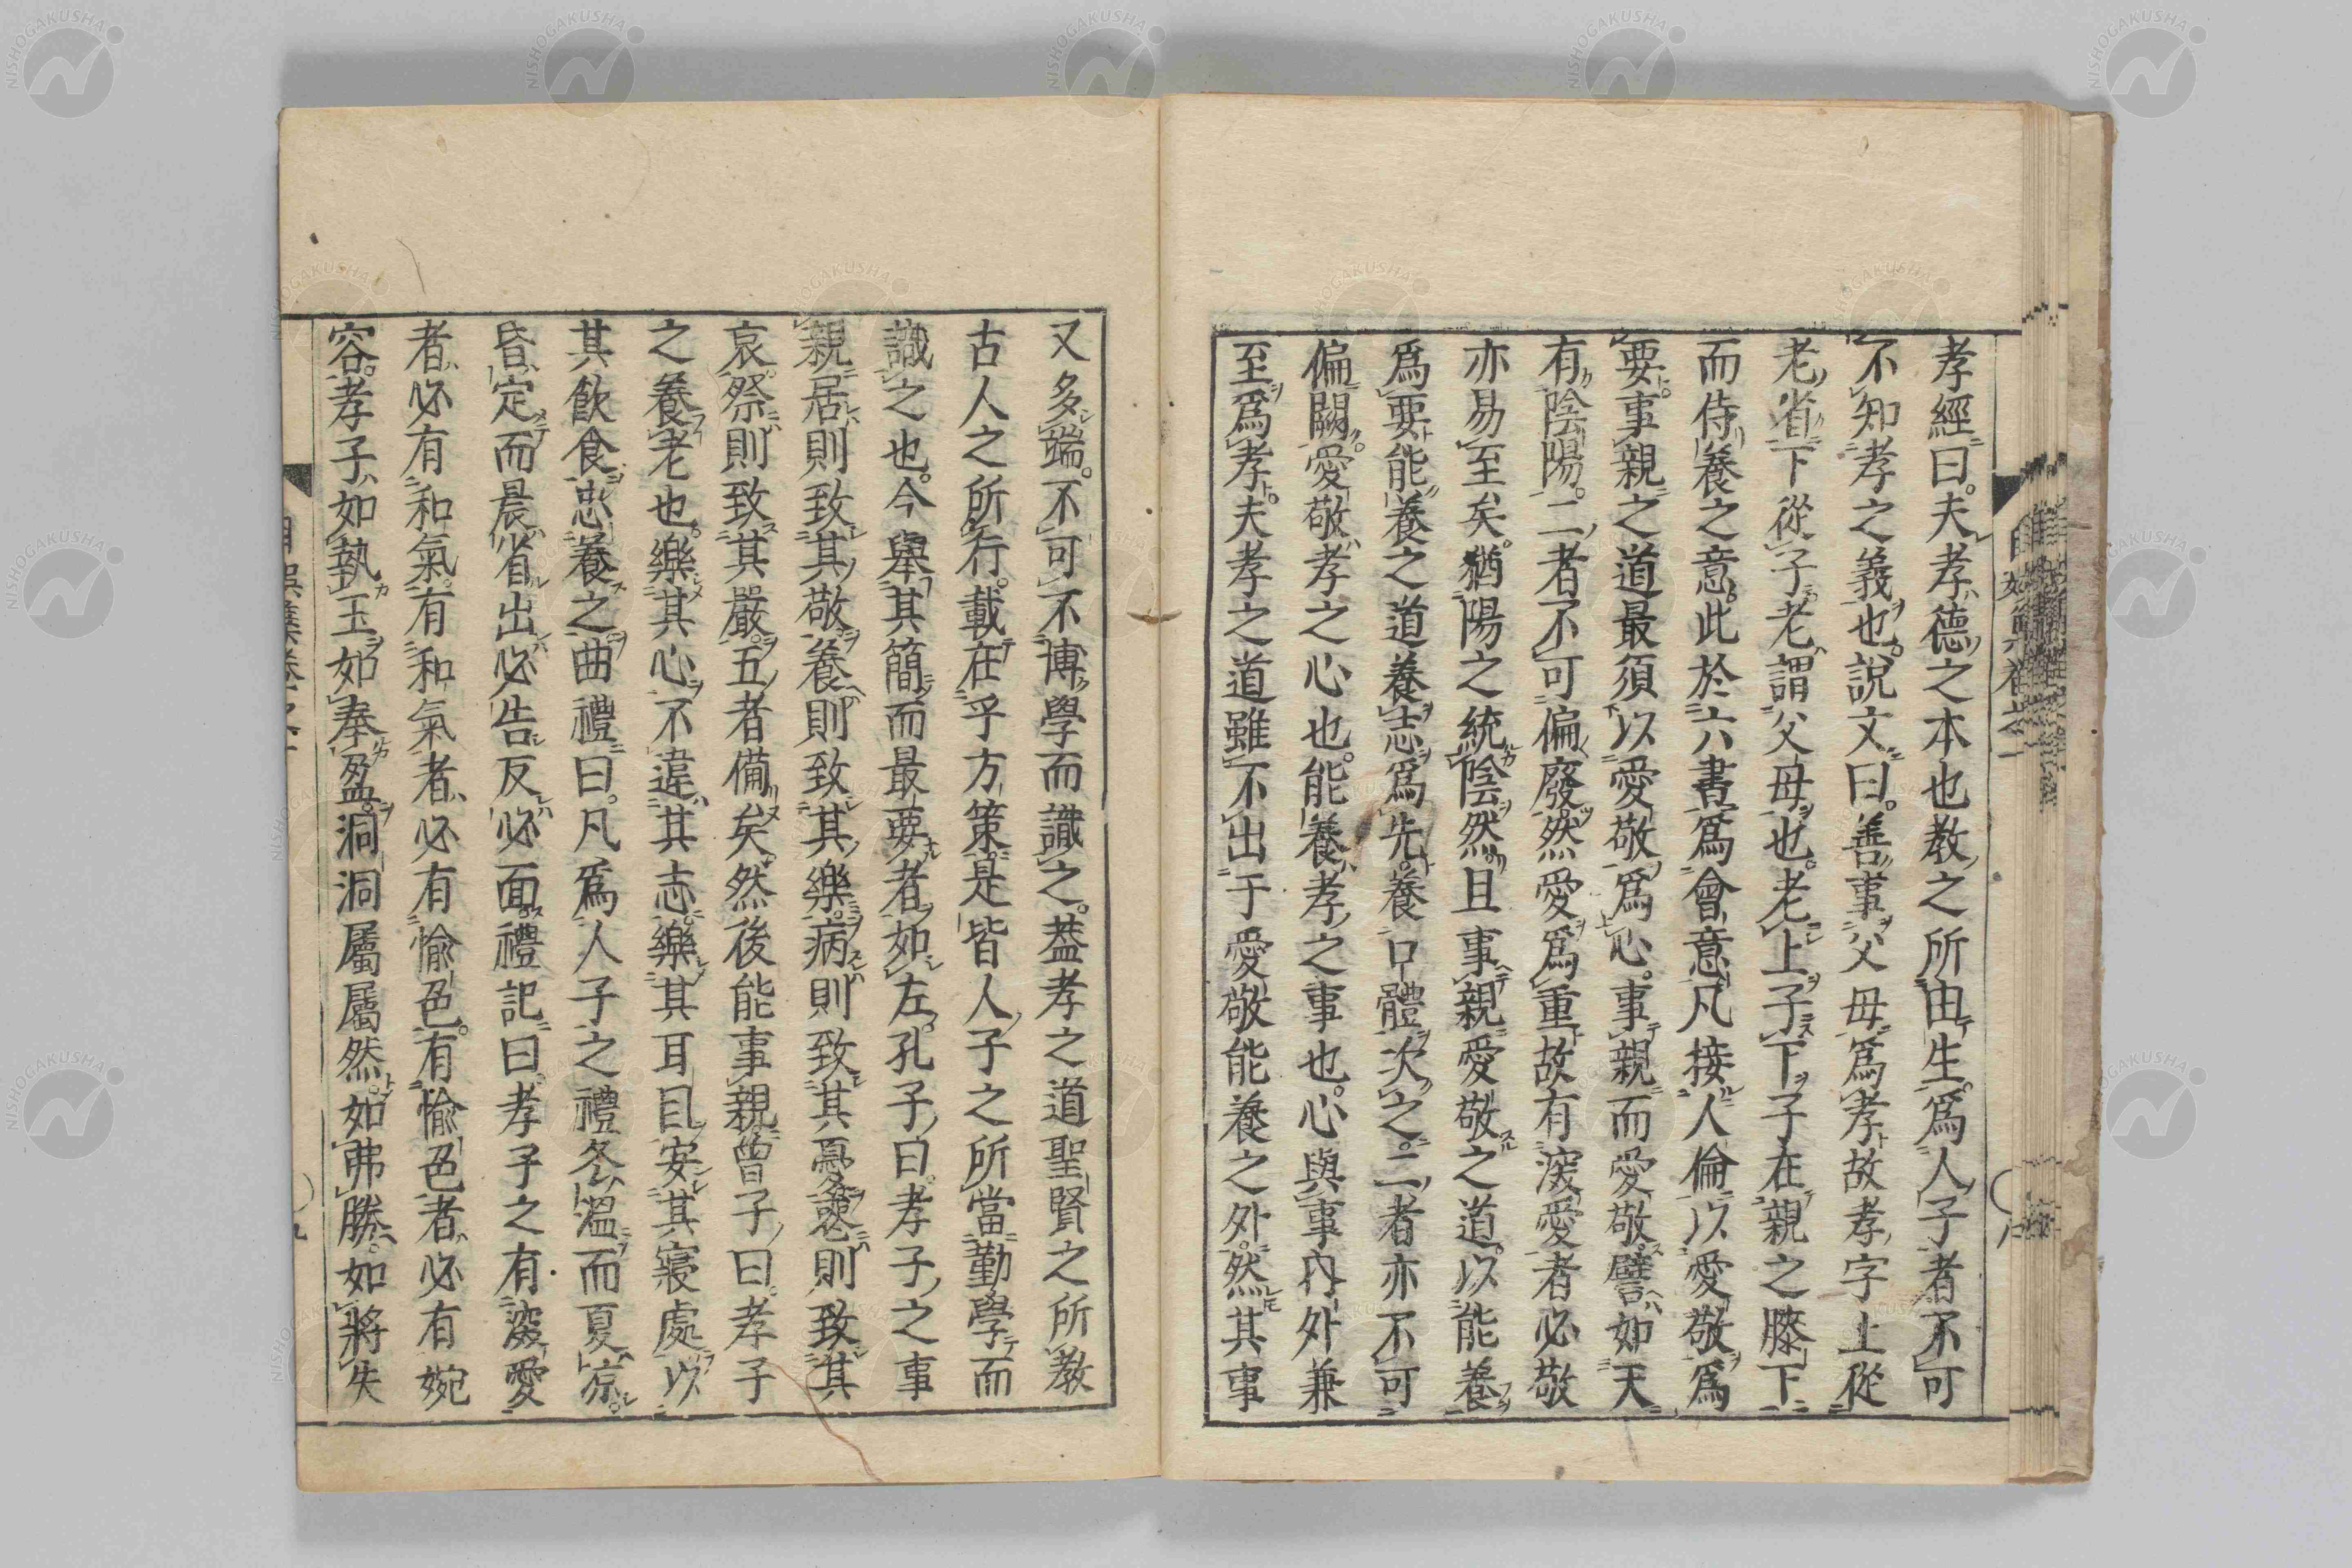 孝經曰。夫孝德之本也教之所由生。爲人子者不可
不知孝之義也。說文曰。善事父母爲孝故孝字上從
老省下從子。老謂父母也。老上子下子在親之膝下
而侍養之意。此於六書爲會意。凡接人倫以愛敬爲
要。事親之道最須以愛敬爲心。事親而愛敬。譬如天
有陰陽。二者不可偏廢。然愛爲重故有深愛者必敬
亦易至矣。猶陽之統陰然。且事親愛敬之道。以能養
爲要能養之道養志爲先。養口體次之。二者亦不可
偏闕。愛敬孝之心也。能養孝之事也。心與事內外兼
至爲孝。夫孝之道雖不出于愛敬能養之外。然其事
又多端。不可不博學而識之。蓋孝之道聖賢之所教
古人之所行。載在乎方策。是皆人子之所當勤學而
識之也。今舉其簡而最要者如左。孔子曰。孝子之事
親居則致其敬養則致其樂。病則致其憂喪則致其
哀祭則致其嚴。五者備矣然後能事親曾子曰。孝子
之養老也。樂其心不違其志樂其耳目安其寢處以
其飲食忠養之曲禮曰。凡爲人子之禮冬溫而夏凉。
昏定而晨省出必告反必面禮記曰。孝子之有深愛
者必有和氣。有和氣者必有愉色。有愉色者必有婉
容。孝子如執玉如奉盈。洞洞屬屬然。如弗勝。如將失
NISHOGAKUSHA